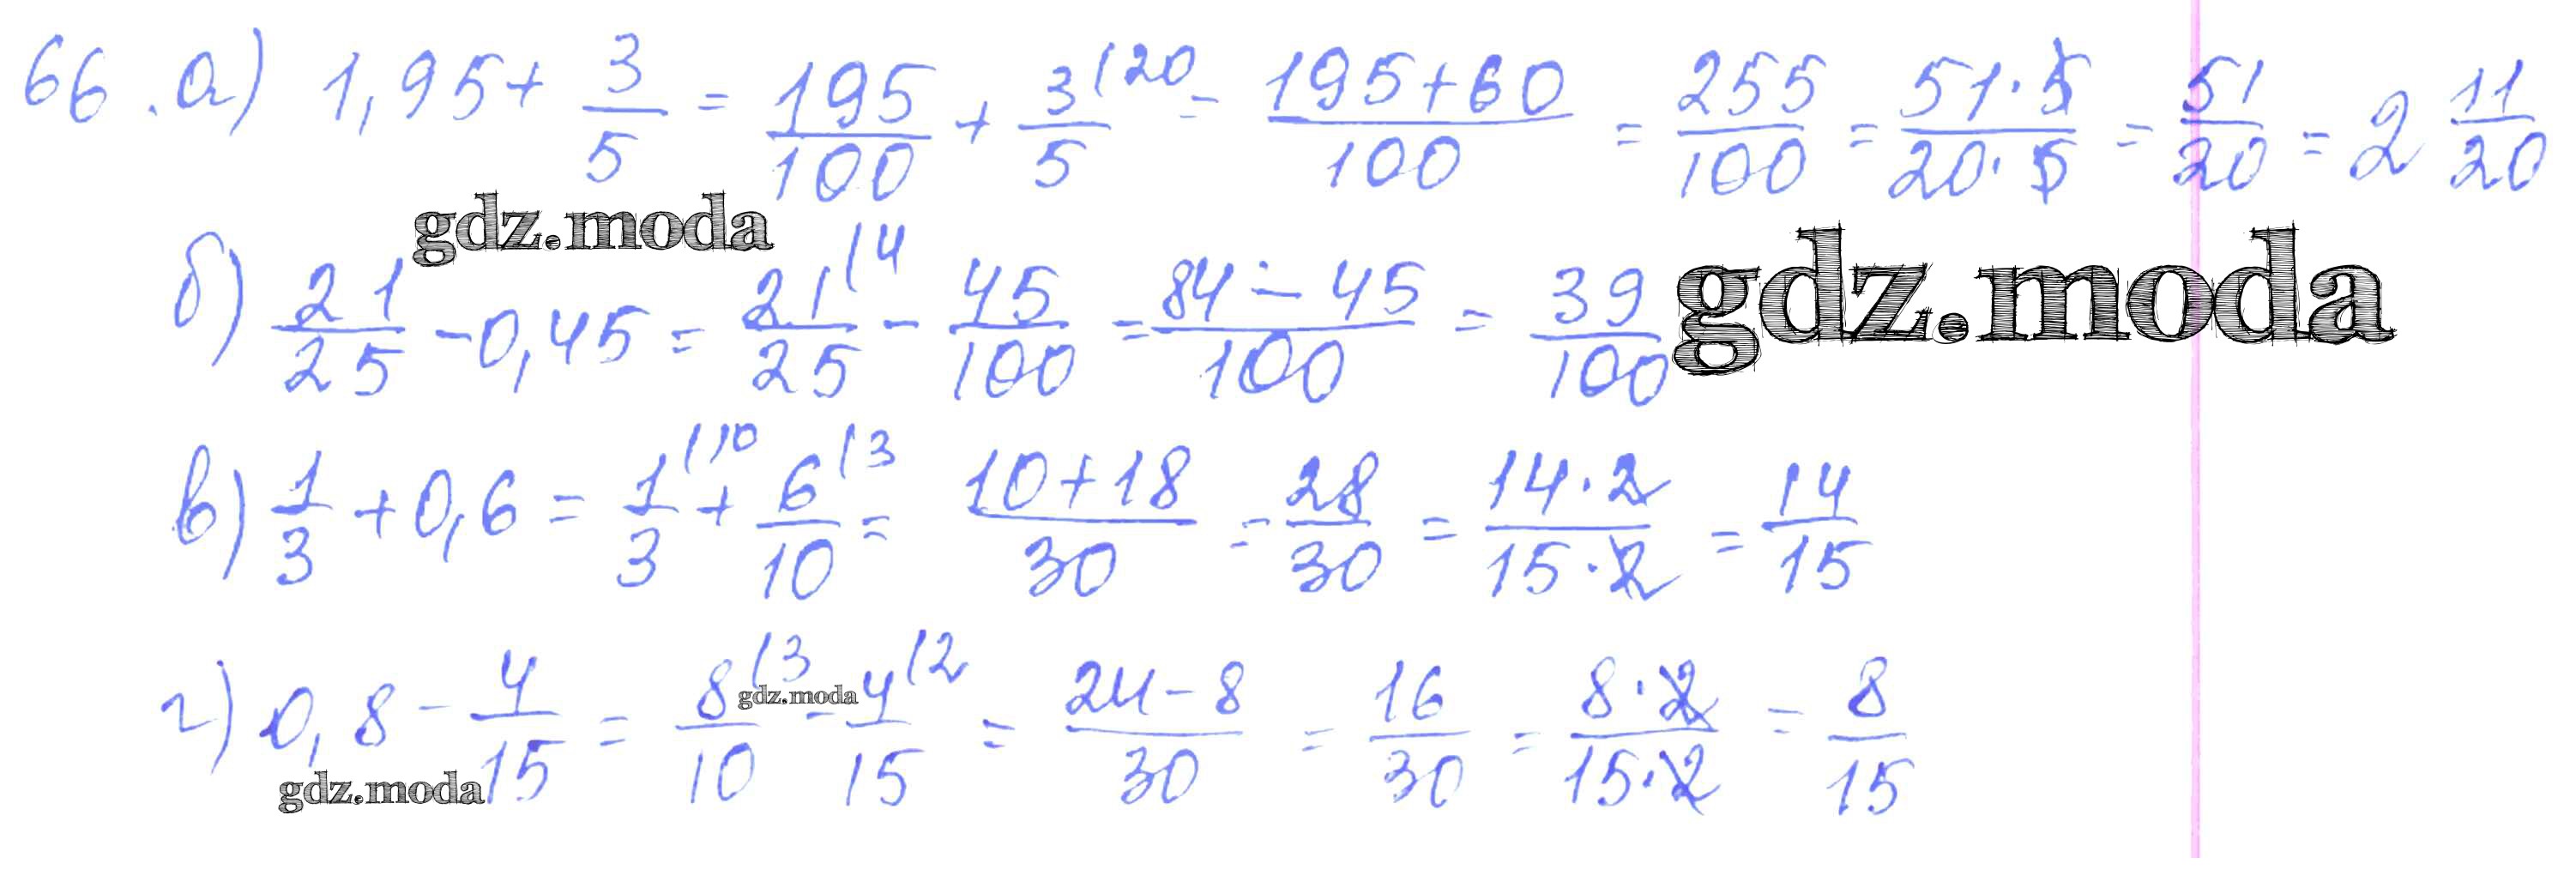 66. а) 1,95 + 3/5 = 195/100 + 3/5 (20 = 195+60/100 = 255/100 = 51·5/20·5 = 51/20 = 2 11/20
gdz.moda
б) 21/25 - 0,45 = 21/25 (4 - 45/100 = 84 - 45/100 = 39/100
gdz.moda
в) 1/3 + 0,6 = 1/3 (10 + 6/10 (3 = 10+18/30 = 28/30 = 14·2/15·2 = 14/15
г) 0,8 - 4/15 = 8/10 (3 - 4/15 (2 = 24-8/30 = 16/30 = 8·2/15·2 = 8/15
gdz.moda
gdz.moda